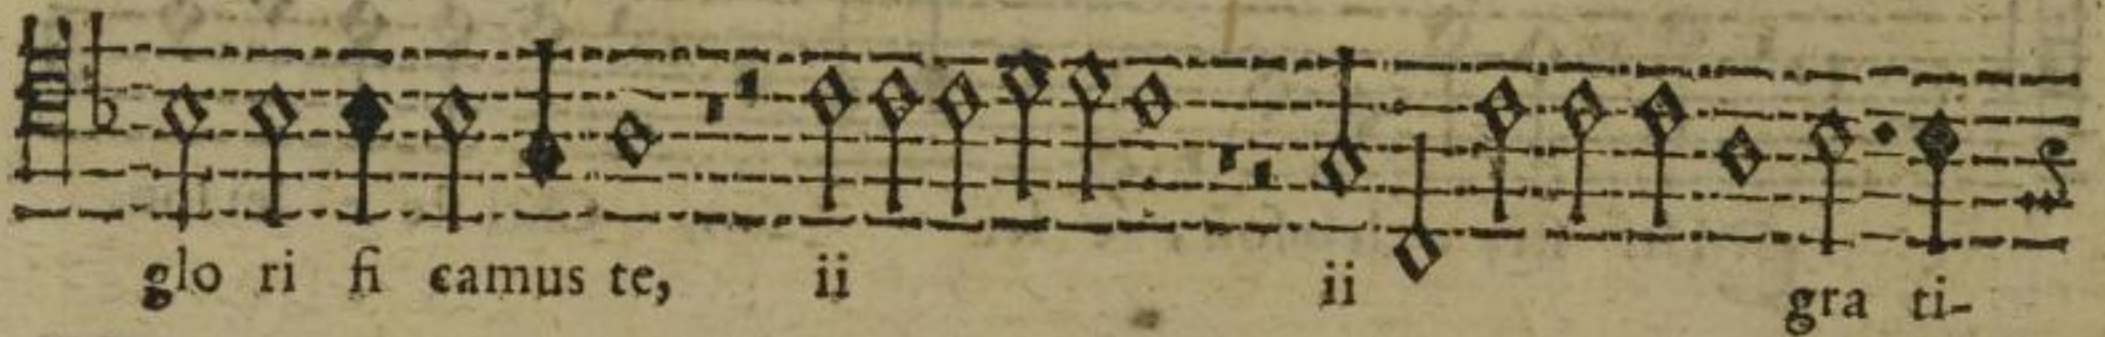 glo ri fi camus te, ii ii gra ti-